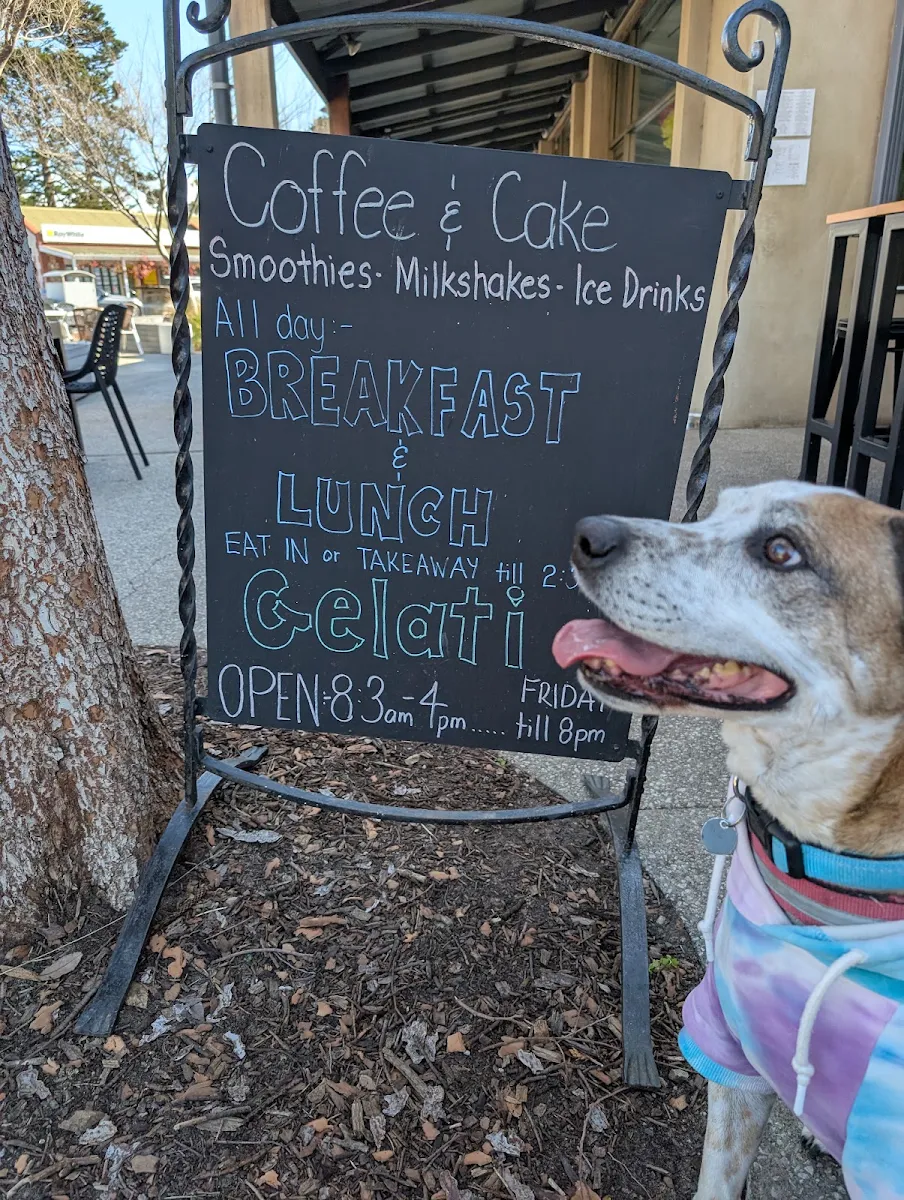 Coffee & Cake
Smoothies - Milkshakes - Ice Drinks
All day :-
BREAKFAST
&
LUNCH
EAT IN or TAKEAWAY till 2:
Gelati
OPEN:- 8:3am - 4pm ..... FRIDAY
till 8pm
Ray White